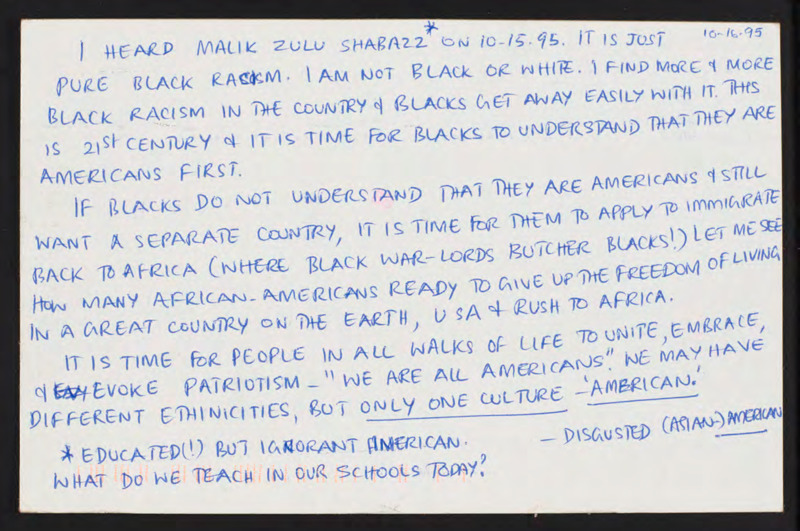 10-16-95
I HEARD MALIK ZULU SHABAZZ* ON 10-15.95. IT IS JUST
PURE BLACK RACISM. I AM NOT BLACK OR WHITE. I FIND MORE & MORE
BLACK RACISM IN THE COUNTRY & BLACKS GET AWAY EASILY WITH IT. THIS
IS 21st CENTURY & IT IS TIME FOR BLACKS TO UNDERSTAND THAT THEY ARE
AMERICANS FIRST.
IF BLACKS DO NOT UNDERSTAND THAT THEY ARE AMERICANS & STILL
WANT A SEPARATE COUNTRY, IT IS TIME FOR THEM TO APPLY TO IMMIGRATE
BACK TO AFRICA (WHERE BLACK WAR-LORDS BUTCHER BLACKS!) LET ME SEE
HOW MANY AFRICAN-AMERICANS READY TO GIVE UP THE FREEDOM OF LIVING
IN A GREAT COUNTRY ON THE EARTH, USA & RUSH TO AFRICA.
IT IS TIME FOR PEOPLE IN ALL WALKS OF LIFE TO UNITE, EMBRACE,
& EVOKE PATRIOTISM - "WE ARE ALL AMERICANS". WE MAY HAVE
DIFFERENT ETHINICITIES, BUT ONLY ONE CULTURE - 'AMERICAN.'
* EDUCATED(!) BUT IGNORANT AMERICAN.
WHAT DO WE TEACH IN OUR SCHOOLS TODAY?
- DISGUSTED (ASIAN-) AMERICAN